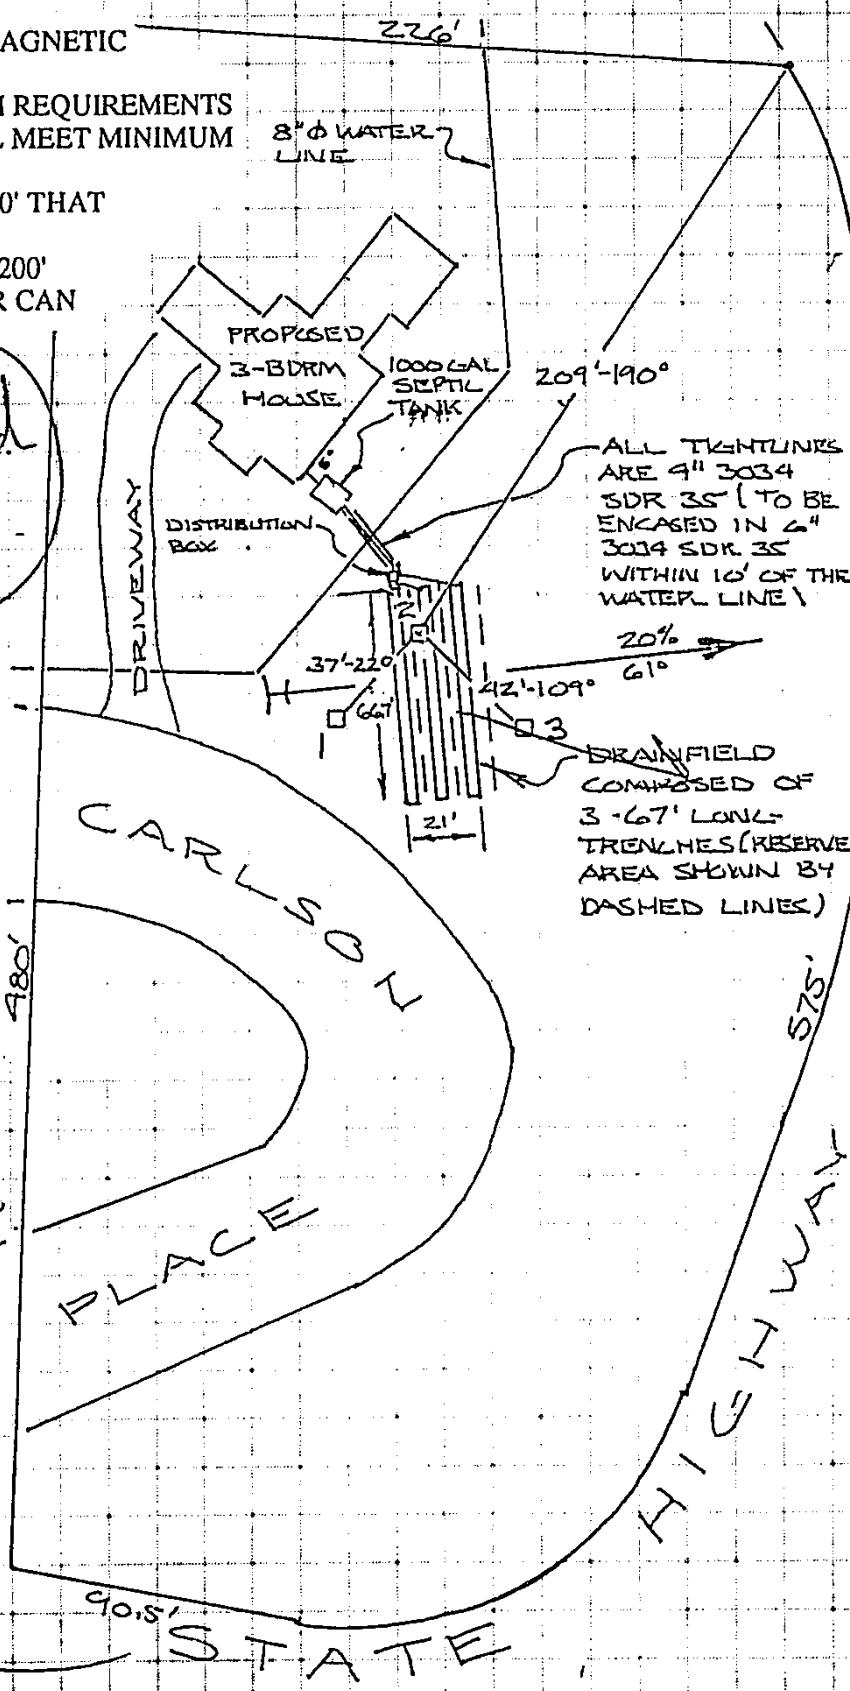 AGNETIC
226'
REQUIREMENTS
MEET MINIMUM
8"Φ WATER
LINE
0' THAT
200'
CAN
PROPOSED
3-BDRM
HOUSE
1000 GAL
SEPTIC
TANK
6'
209'-190°
ALL TIGHTLINES
ARE 4" 3034
SDR 35 (TO BE
ENCASED IN 6"
3034 SDR 35
WITHIN 10' OF THE
WATER LINE)
DISTRIBUTION
BOX
DRIVEWAY
2
20%
61°
37'-220°
42'-109°
667'
1
3
DRAINFIELD
COMPOSED OF
3-67' LONG
TRENCHES (RESERVE
AREA SHOWN BY
DASHED LINES)
21'
CARLSON
PLACE
480'
575'
HIGHWAY
90.5'
STATE